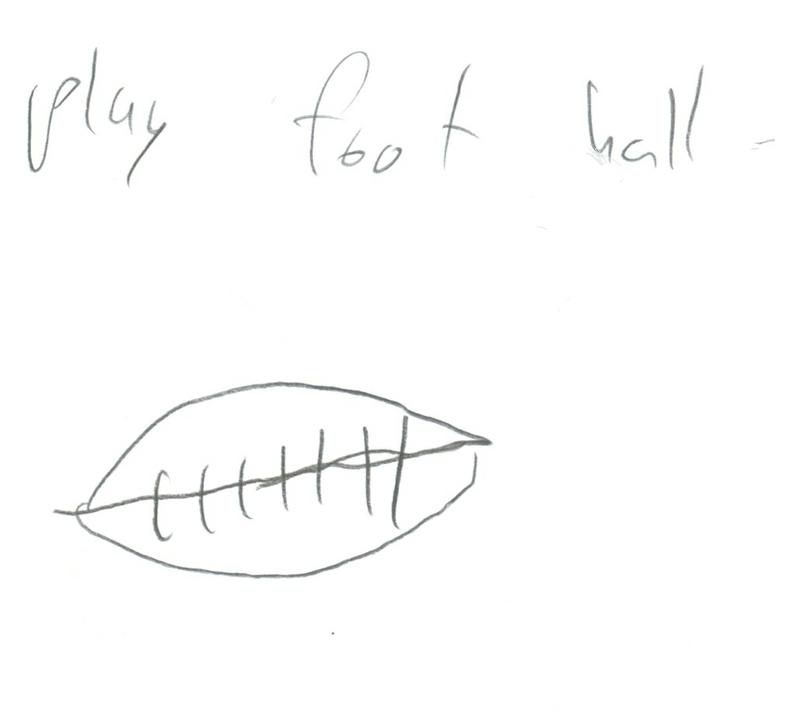 play foot ball -